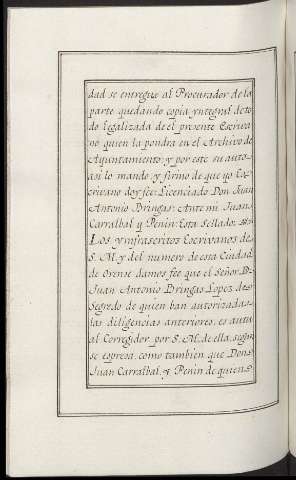 dad se entregue al Procurador de la
parte quedando copia yntegral de to
do legalizada de el presente Escriva
no quien la pondra en el Archivo de
Ayuntamiento; y por este su auto
asi lo mando y firmo de que yo Es
crivano doy fee: Licenciado Don Juan
Antonio Bringas: Ante mi Juan
Carralbal y Penin: Esta sellado:
Los ynfrascritos Escrivanos de
S. M. y del numero de esta Ciudad
de Orense damos fee que el Señor D.
Juan Antonio Bringas Lopez de
Segredo de quien ban autorizadas
las diligencias anteriores, es actu
al Corregidor por S. M. de ella, segun
se espresa, como tambien que Don
Juan Carralbal, y Penin de quien